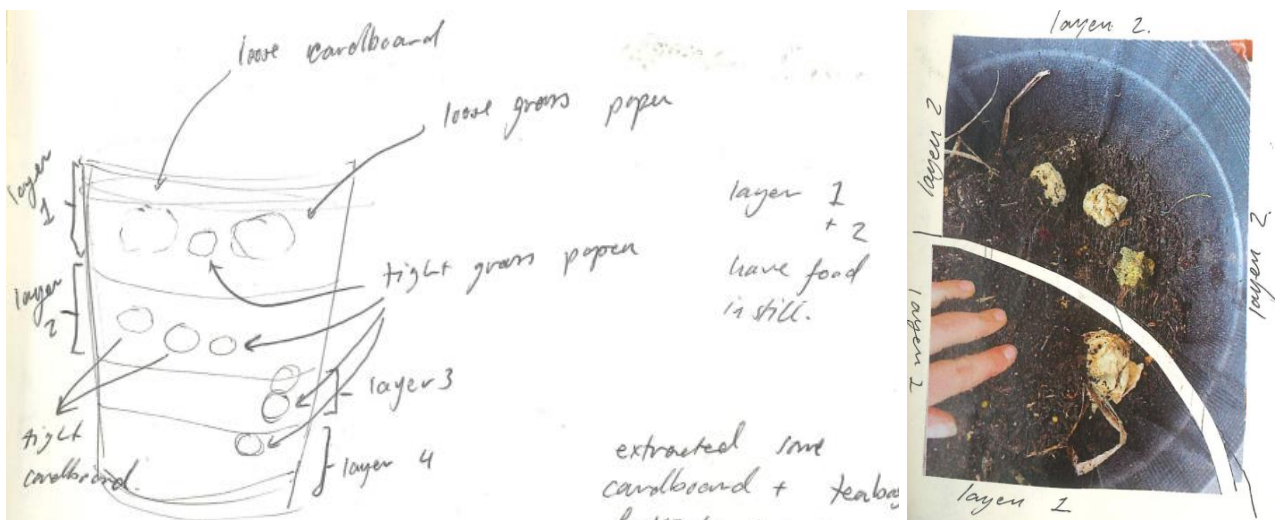 loose cardboard
loose grass paper
layer
1
layer
2
tight grass paper
layer 3
layer 4
tight
cardboard.
layer 1
+ 2
have food
in still.
extracted some
cardboard +
layer 2.
layer 2
layer 2
layer 1
layer 1